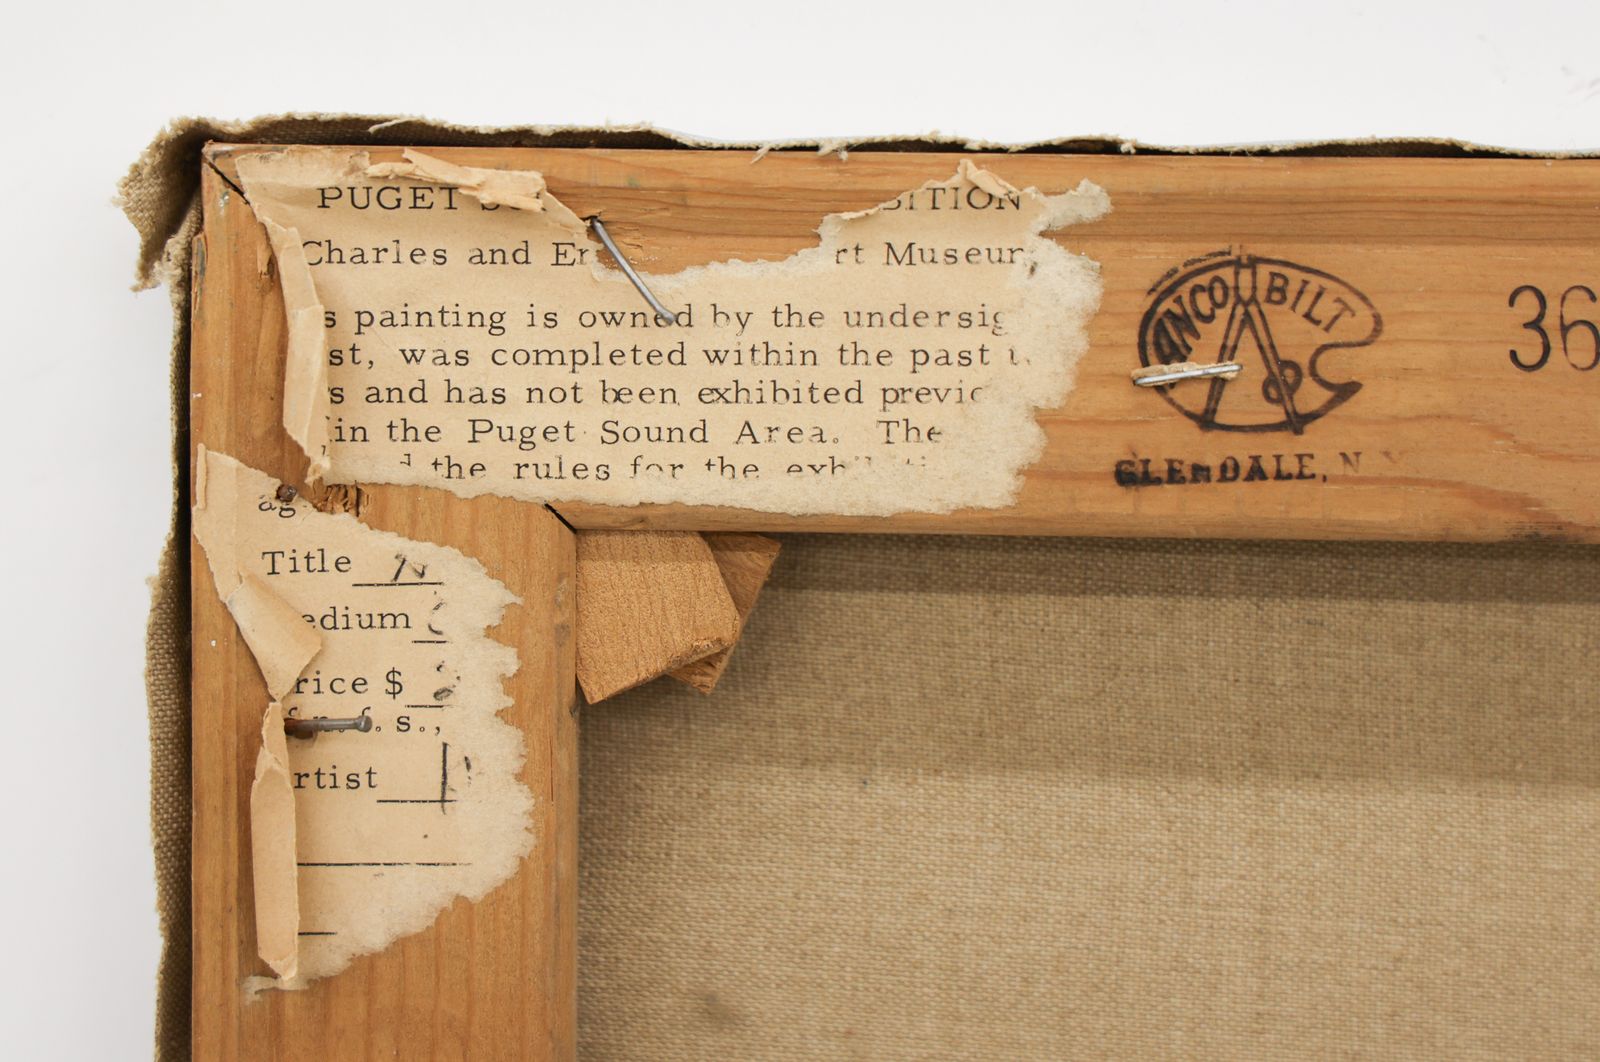 PUGET
BITION
Charles and
rt Museum
s painting is owned by the undersig
st, was completed within the past
s and has not been exhibited previo
in the Puget Sound Area. The
the rules for the exh
ag
Title N
edium
rice $
f. s.,
rtist
ANCO BILT
GLENDALE, N.Y.
36